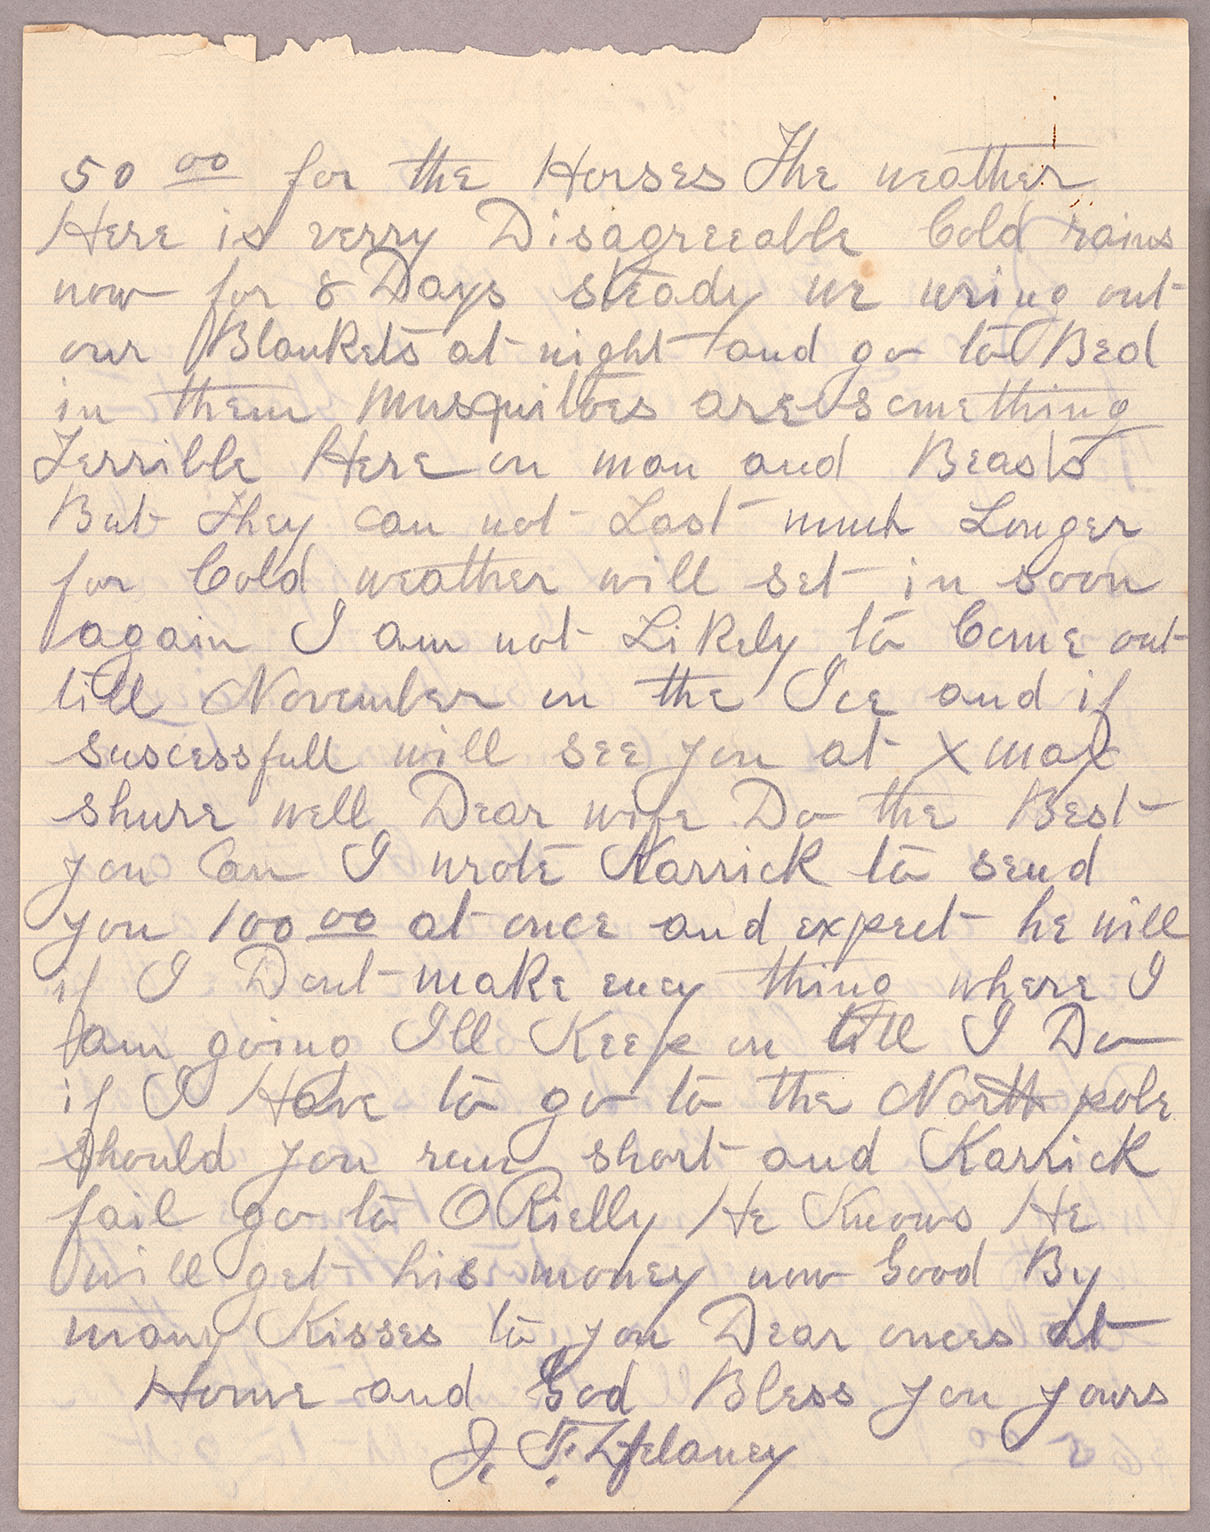 50 00 for the Horses The weather
Here is verry Disagreeable Cold rains
now for 8 Days steady we wring out
our Blankets at night and go to Bed
in them Musquitoes are something
Terrible Here on man and Beasts
But They can not Last much Longer
for Cold weather will set in soon
again I am not Likely to Come out
till November on the Ice and if
suscessfull will see you at Xmax
shure well Dear wife Do the Best
you Can I wrote Karrick to send
you 100 00 at once and expect he will
if I Dont make eney thing where I
am going Ill Keep on till I Do
if I Have to go to the North pole
should you run short and Karrick
fail go to ORielly He Knows He
will get his money now Good By
many Kisses to you Dear onces at
Home and God Bless you yours
J. T. Delaney